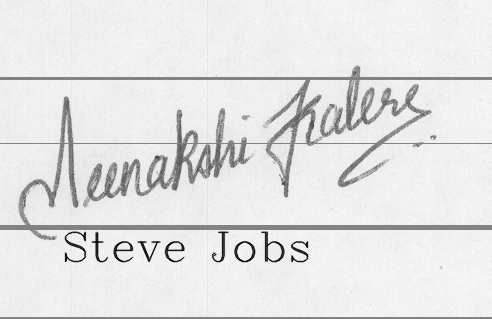 Meenakshi Kalere
Steve Jobs